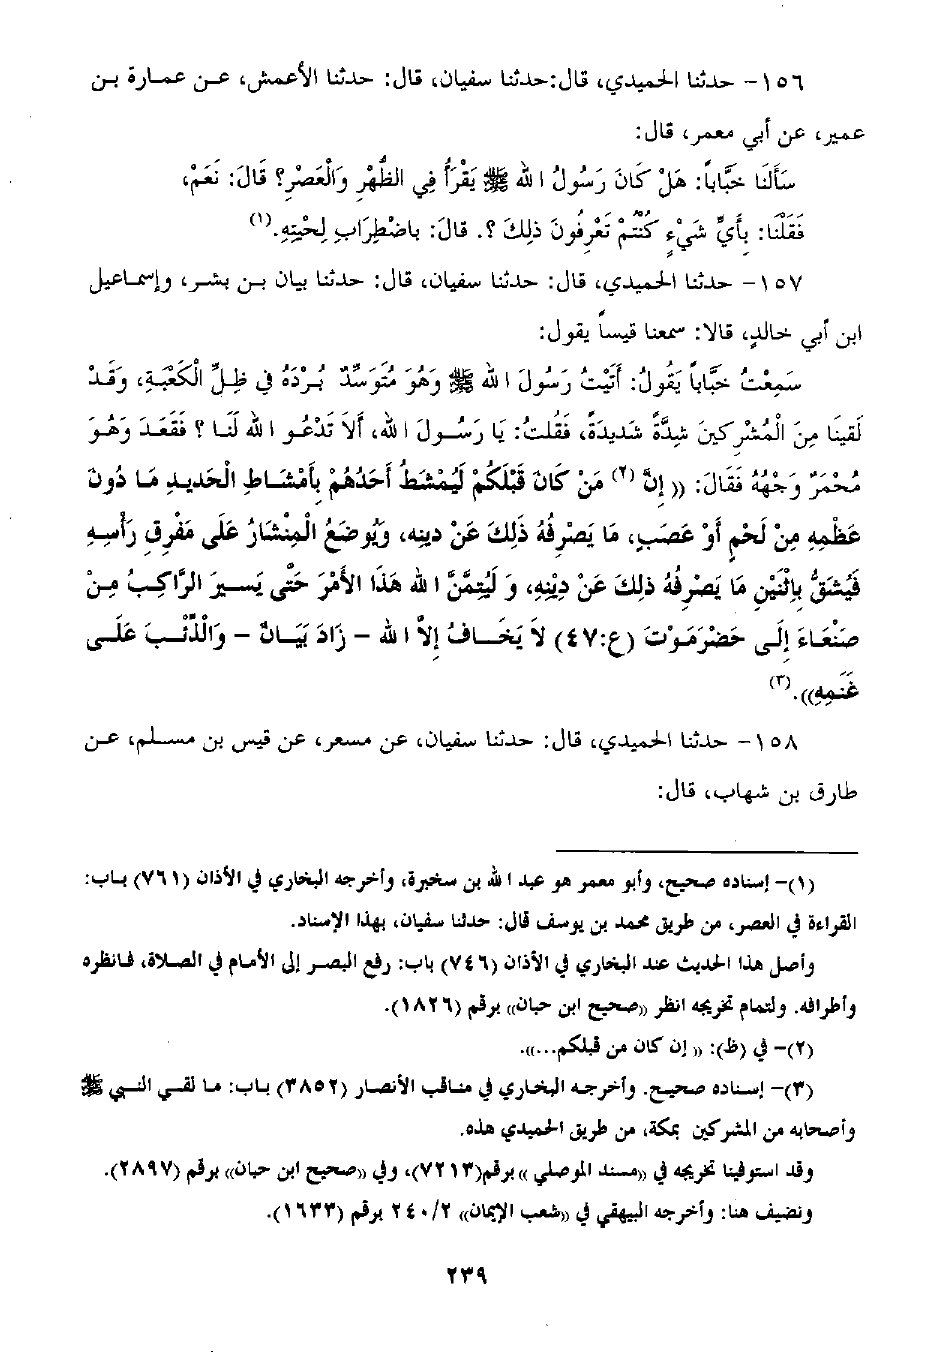 ١٥٦- حدثنا الحميدي، قال:حدثنا سفيان، قال: حدثنا الأعمش، عن عمارة بن
عمير، عن أبي معمر، قال:
سَأَلنَا خَبَّاباً: هَلْ كَانَ رَسُولُ الله ﷺ يَقْرَأُ فِي الظُّهْرِ وَالْعَصْرِ؟ قَالَ: نَعَمْ،
فَقَلْنَا: بِأَيِّ شَيْءٍ كُنْتُمْ تَعْرِفُونَ ذلِكَ ؟. قَالَ: بِاضْطِرَابِ لِحْيَتِهِ.(١)
١٥٧- حدثنا الحميدي، قال: حدثنا سفيان، قال: حدثنا بيان بن بشر، وإسماعيل
ابن أبي خالدٍ، قالا: سمعنا قيساً يقول:
سَمِعْتُ خَبَّاباً يَقُولُ: أَتَيْتُ رَسُولَ الله ﷺ وَهُوَ مُتَوَسِّدٌ بُرْدَهُ في ظِلِّ الْكَعْبَةِ، وَقَدْ
لَقينَا مِنَ الْمُشْرِكينَ شِدَّةً شَديدَةً، فَقُلتُ: يَا رَسُولَ الله، أَلاَ تَدْعُو الله لَنَا ؟ فَقَعَدَ وَهُوَ
مُحْمَرٌّ وَجْهُهُ فَقَالَ: (( إِنَّ (٢) مَنْ كَانَ قَبْلَكُمْ لَيُمْشَطُ أَحَدُهُمْ بِأَمْشَاطِ الْحَديدِ مَا دُونَ
عَظْمِهِ مِنْ لَحْمٍ أَوْ عَصَبٍ، مَا يَصْرِفُهُ ذَلِكَ عَنْ دينِهِ، وَيُوضَعُ الْمِنْشَارُ عَلَى مَفْرِقِ رَأْسِهِ
فَيُشَقُّ بِاثْنَيْنِ مَا يَصْرِفُهُ ذلِكَ عَنْ دِيْنِهِ، وَ لَيُتِمَّنَّ الله هَذَا الأَمْرَ حَتَّى يَسيرَ الرَّاكِبُ مِنْ
صَنْعَاءَ إِلَى حَضْرَمَوْتَ (ع:٤٧) لاَ يَخَافُ إِلاَّ الله - زَادَ بَيَانٌ - وَالْذِّئْبَ عَلَى
غَنَمِهِ)).(٣)
١٥٨- حدثنا الحميدي، قال: حدثنا سفيان، عن مسعر، عن قيس بن مسلم، عن
طارق بن شهاب، قال:
(١)- إسناده صحيح، وأبو معمر هو عبد الله بن سخبرة، وأخرجه البخاري في الأذان (٧٦١) باب:
القراءة في العصر، من طريق محمد بن يوسف قال: حدثنا سفيان، بهذا الإسناد.
وأصل هذا الحديث عند البخاري في الأذان (٧٤٦) باب: رفع البصر إلى الأمام في الصلاة، فانظره
وأطرافه. ولتمام تخريجه انظر ((صحيح ابن حبان)) برقم (١٨٢٦).
(٢)- في (ظ): (( إن كان من قبلكم...)).
(٣)- إسناده صحيح. وأخرجه البخاري في مناقب الأنصار (٣٨٥٢) باب: ما لقي النبي ﷺ
وأصحابه من المشركين بمكة، من طريق الحميدي هذه.
وقد استوفينا تخريجه في ((مسند الموصلي )) برقم(٧٢١٣)، وفي ((صحيح ابن حبان)) برقم (٢٨٩٧).
ونضيف هنا: وأخرجه البيهقي في ((شعب الإيمان)) ٢٤٠/٢ برقم (١٦٣٣).
٢٣٩